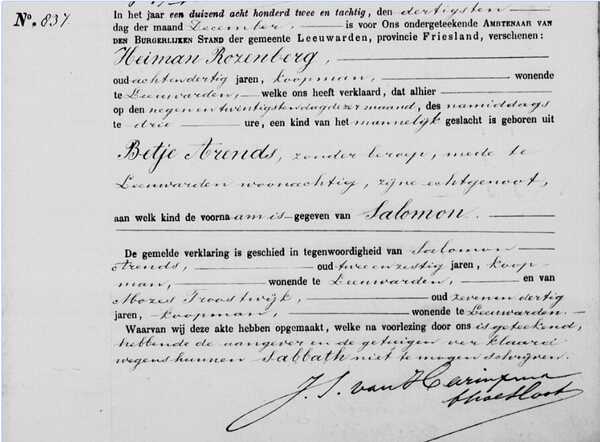 No. 837
In het jaar een duizend acht honderd twee en tachtig, den dertigsten
dag der maand December, is voor Ons ondergeteekende AMBTENAAR VAN
DEN BURGERLIJKEN STAND der gemeente LEEUWARDEN, provincie FRIESLAND, verschenen:
Heiman Rozenberg,
oud achtendertig jaren, koopman, wonende
te Leeuwarden, welke ons heeft verklaard, dat alhier
op den negen en twintigsten dag dezer maand, des namiddags
te drie ure, een kind van het mannelijk geslacht is geboren uit
Betje Arends, zonder beroep, mede te
Leeuwarden woonachtig, zijne echtgenoot,
aan welk kind de voornaam is gegeven van Salomon.
De gemelde verklaring is geschied in tegenwoordigheid van Salomon
Arends, oud twee en zestig jaren, koop-
man, wonende te Leeuwarden, en van
Mozes Troostwijk, oud zeven en dertig
jaren, koopman, wonende te Leeuwarden.
Waarvan wij deze akte hebben opgemaakt, welke na voorlezing door ons is geteekend,
hebbende de aangever en de getuigen verklaard
wegens hunnen Sabbath niet te mogen schrijven.
J. S. van Harinxma
thoe Slooten